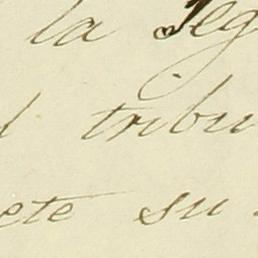 la seg
l tribu
ete su